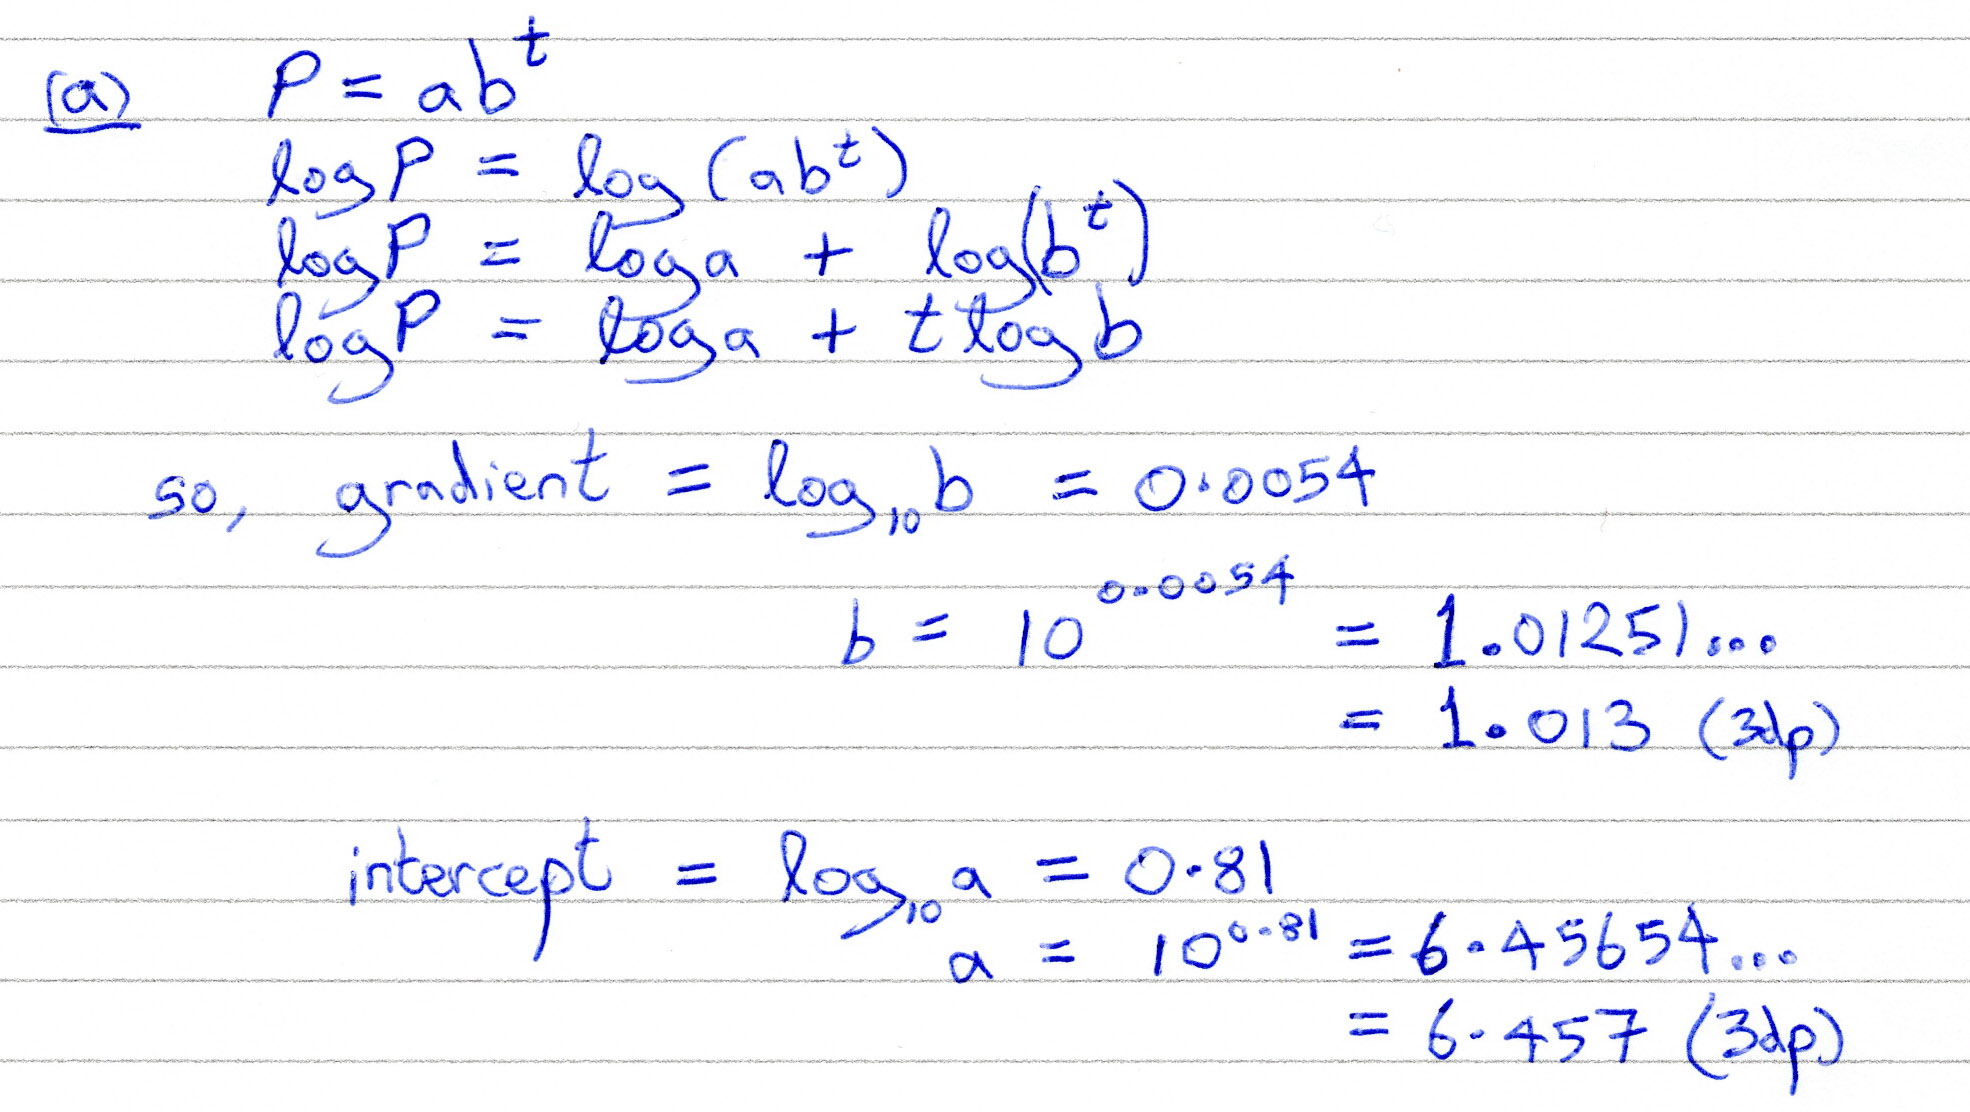 (a) P = ab^t
log P = log (ab^t)
log P = log a + log(b^t)
log P = log a + t log b
so, gradient = log₁₀ b = 0.0054
b = 10^0.0054 = 1.01251...
= 1.013 (3dp)
intercept = log₁₀ a = 0.81
a = 10^0.81 = 6.45654...
= 6.457 (3dp)